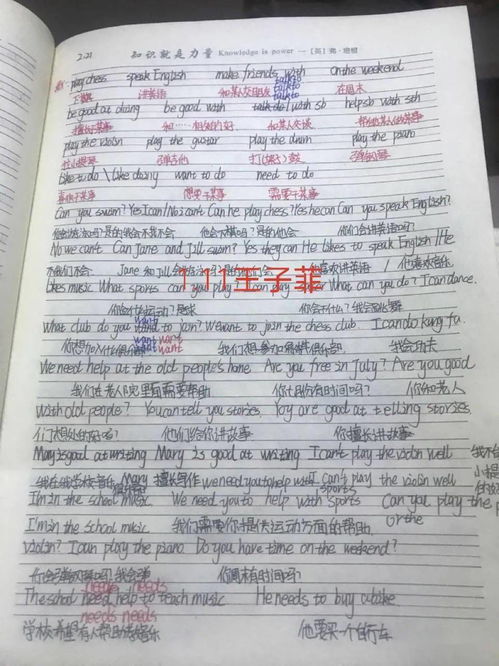 2.21 知识就是力量 Knowledge is power —[英]弗·培根
play chess speak English make friends with on the weekend
下象棋 讲英语 和某人交朋友 在周末
talk to
be good at doing be good with talk to / with sb help sb with sth
擅长做某事 和……相处的好 和某人交谈
play the violin play the guitar play the drum play the piano
拉小提琴 弹吉他 打(敲)鼓 弹钢琴
like to do \ like doing want to do need to do
喜欢做某事 想要干某事 需要干某事
Can you swim? Yes I can / No I can't Can he play chess? Yes he can Can you speak English?
他会下棋吗? 他会 你们会讲英语吗?
No we can't Can Jane and Jill swim? Yes they can He likes to speak English / He
不我们不会 Jane and Jill 他喜欢讲英语 / 他喜欢音乐
likes music What sports can you play? I can play soccer What can you do? I can dance.
111王子菲
你会做什么运动? 足球 你会干什么? 我会跳舞
want
What club do you want to join? We want to join the chess club I can do kung fu.
want want
你想加入什么俱乐部 want want 我们想参加象棋俱乐部 我会功夫
We need help at the old people's home. Are you free in July? Are you good
我们在老人院里面需要帮助 你七月份有时间吗? 你和老人
with old people? You can tell you stories You are good at telling stories
们相处的好吗? 他们给你讲故事 你擅长讲故事
Mary is good at writing Mary is good at writing I can't play the violin well
Mary 擅长写作 we need you to help with I can't play the violin well
sports
I'm in the school music We need you to help with sports Can you play the p
or the
I'm in the school music 我们需要你提供运动方面的帮助
violin? I can play the piano Do you have time on the weekend?
我会弹 你周末有时间吗?
needs needs
The school need help to teach music He needs to buy a bike
needs needs
学校希望有人帮助教音乐 他要买一个自行车